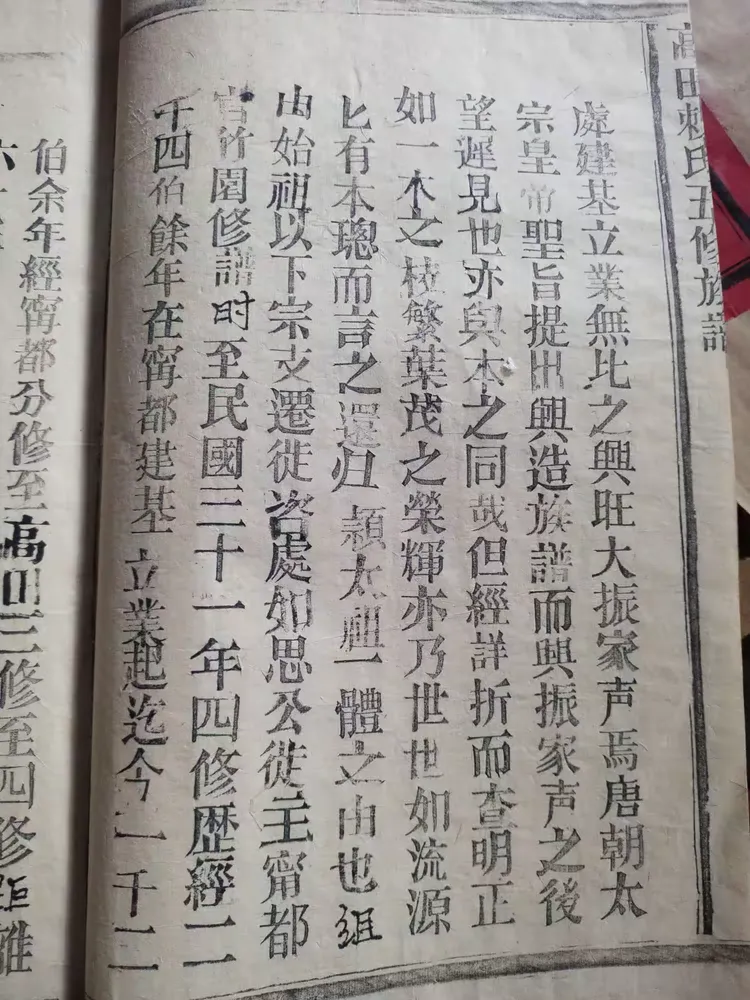 高田賴氏五修族譜
處建基立業無比之興旺大振家声焉唐朝太
宗皇帝聖旨提出興造族譜而興振家声之後
望遲見也亦與本之同哉但經詳折而查明正
如一木之枝繁葉茂之榮輝亦乃世世如流源
匕有本璁而言之還归頴太祖一體之由也組
由始祖以下宗支遷徙咨處如思公徙主寗都
官竹園修譜时至民國三十一年四修歴經二
千四伯餘年在寗都建基立業起迄今一千二
伯余年經寗都分修至高田三修至四修距離